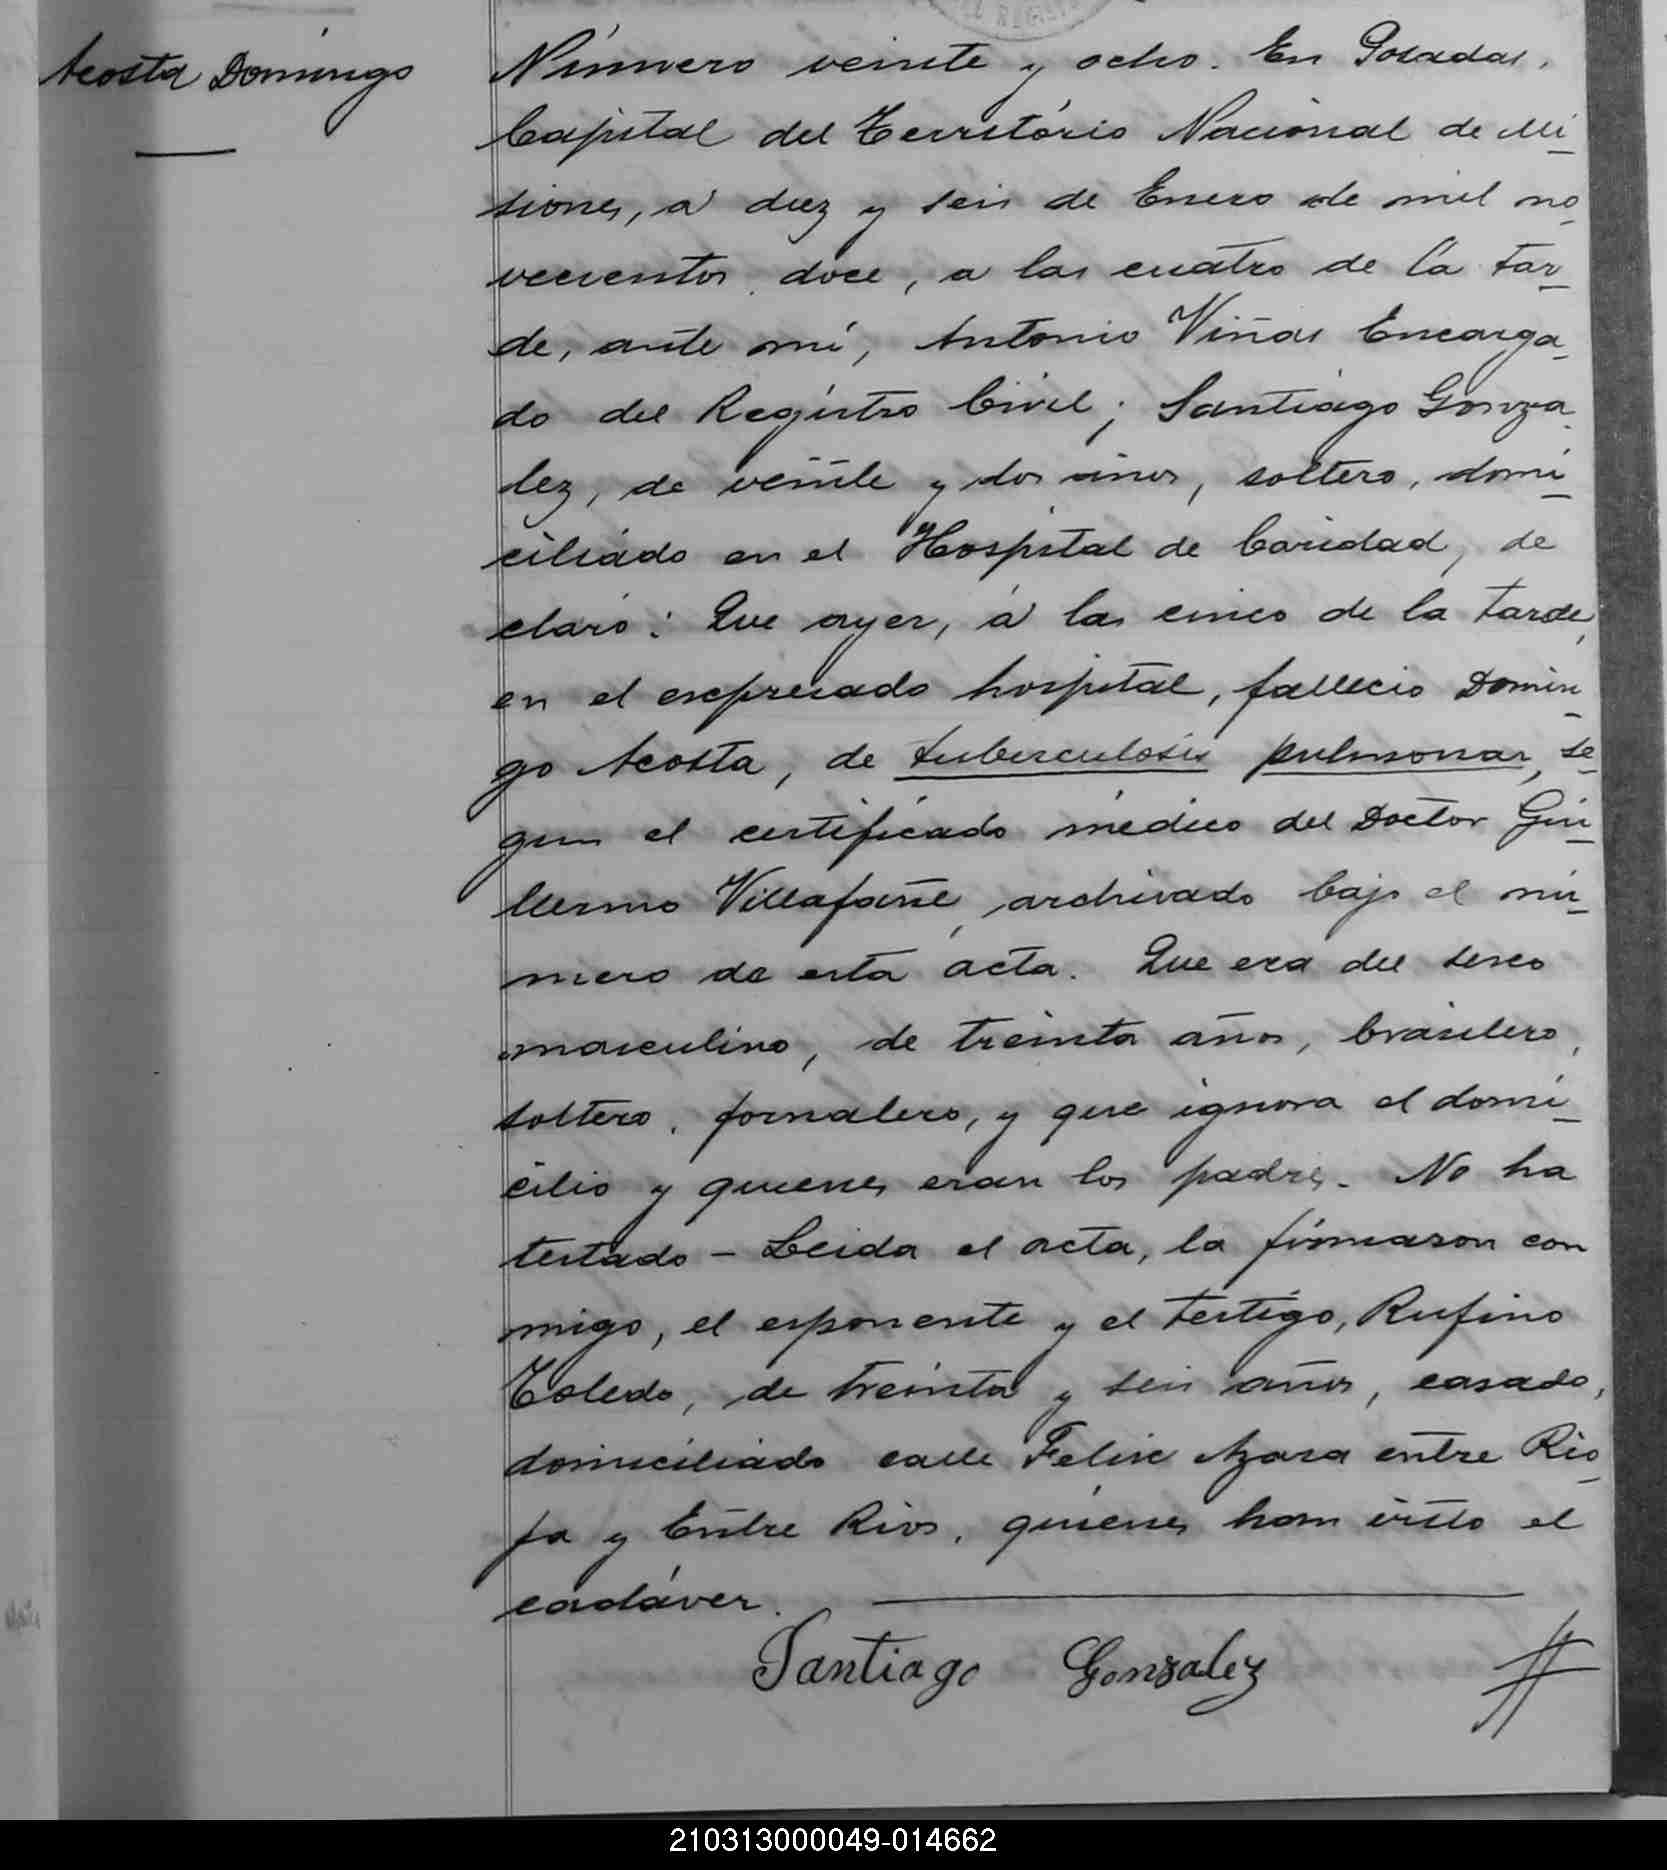 Acosta Domingo
Número veinte y ocho. En Posadas,
Capital del Território Nacional de Mi
siones, a diez y seis de Enero de mil no
vecientos doce, a las cuatro de la tar
de, ante mí, Antonio Viñas Encarga
do del Registro Civil; Santiago Gonza
lez, de veinte y dos años, soltero, domi
ciliado en el Hospital de Caridad, de
claró: Que ayer, á las cinco de la tarde,
en el expresado hospital, falleció Domin
go Acosta, de tuberculosis pulmonar, se
gun el certificado médico del Doctor Gui
llermo Villafañe, archivado bajo el nú
mero de esta acta. Que era del sexo
masculino, de treinta años, brasilero,
soltero, jornalero, y que ignora el domi
cilio y quienes eran los padres. No ha
testado – Leida el acta, la firmaron con
migo, el exponente y el testigo, Rufino
Toledo, de treinta y seis años, casado,
domiciliado calle Felix Azara entre Rio
ja y Entre Rios, quienes han visto el
cadáver.
Santiago Gonzalez
210313000049-014662